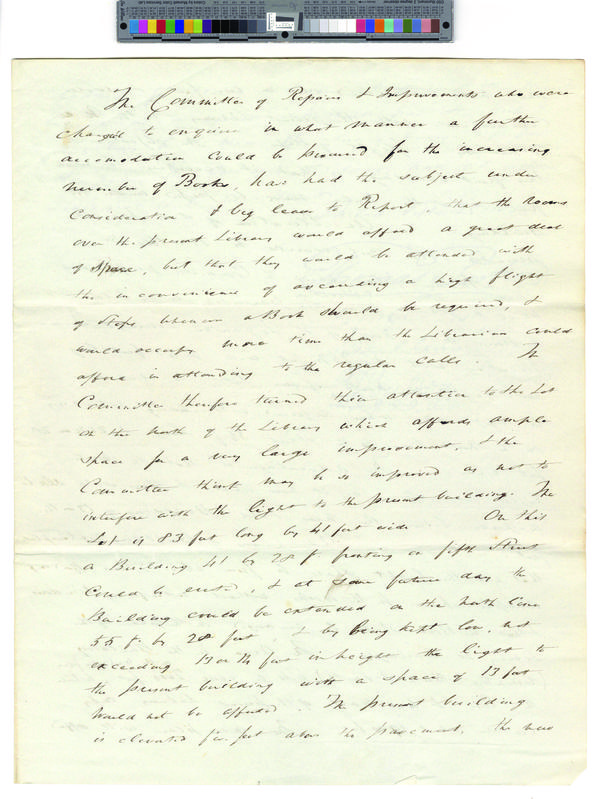 The Committee of Repairs & Improvements who were
charged to enquire in what manner a further
accomodation could be procured for the increasing
number of Books, have had the subject under
Consideration & beg leave to Report, that the rooms
over the present Library would afford a great deal
of space, but that they would be attended with
the inconvenience of ascending a high flight
of Steps, whenever a Book should be required, &
would occupy more time than the Librarian could
afford in attending to the regular calls. The
Committee therefore turned their attention to the Lot
on the North of the Library which affords ample
space for a very large improvement, & the
Committee think may be so improved as not to
interfere with the light to the present building. The
Lot is 83 feet long by 41 feet wide On this
a Building 41 by 28 f fronting on fifth Street
could be erected, & at some future day the
Building could be extended on the North line
55 f by 28 feet, & by being kept low, not
exceeding 13 or 14 feet in height the light to
the present building with a space of 13 feet
would not be affected. The present building
is elevated five feet above the pavement, the new